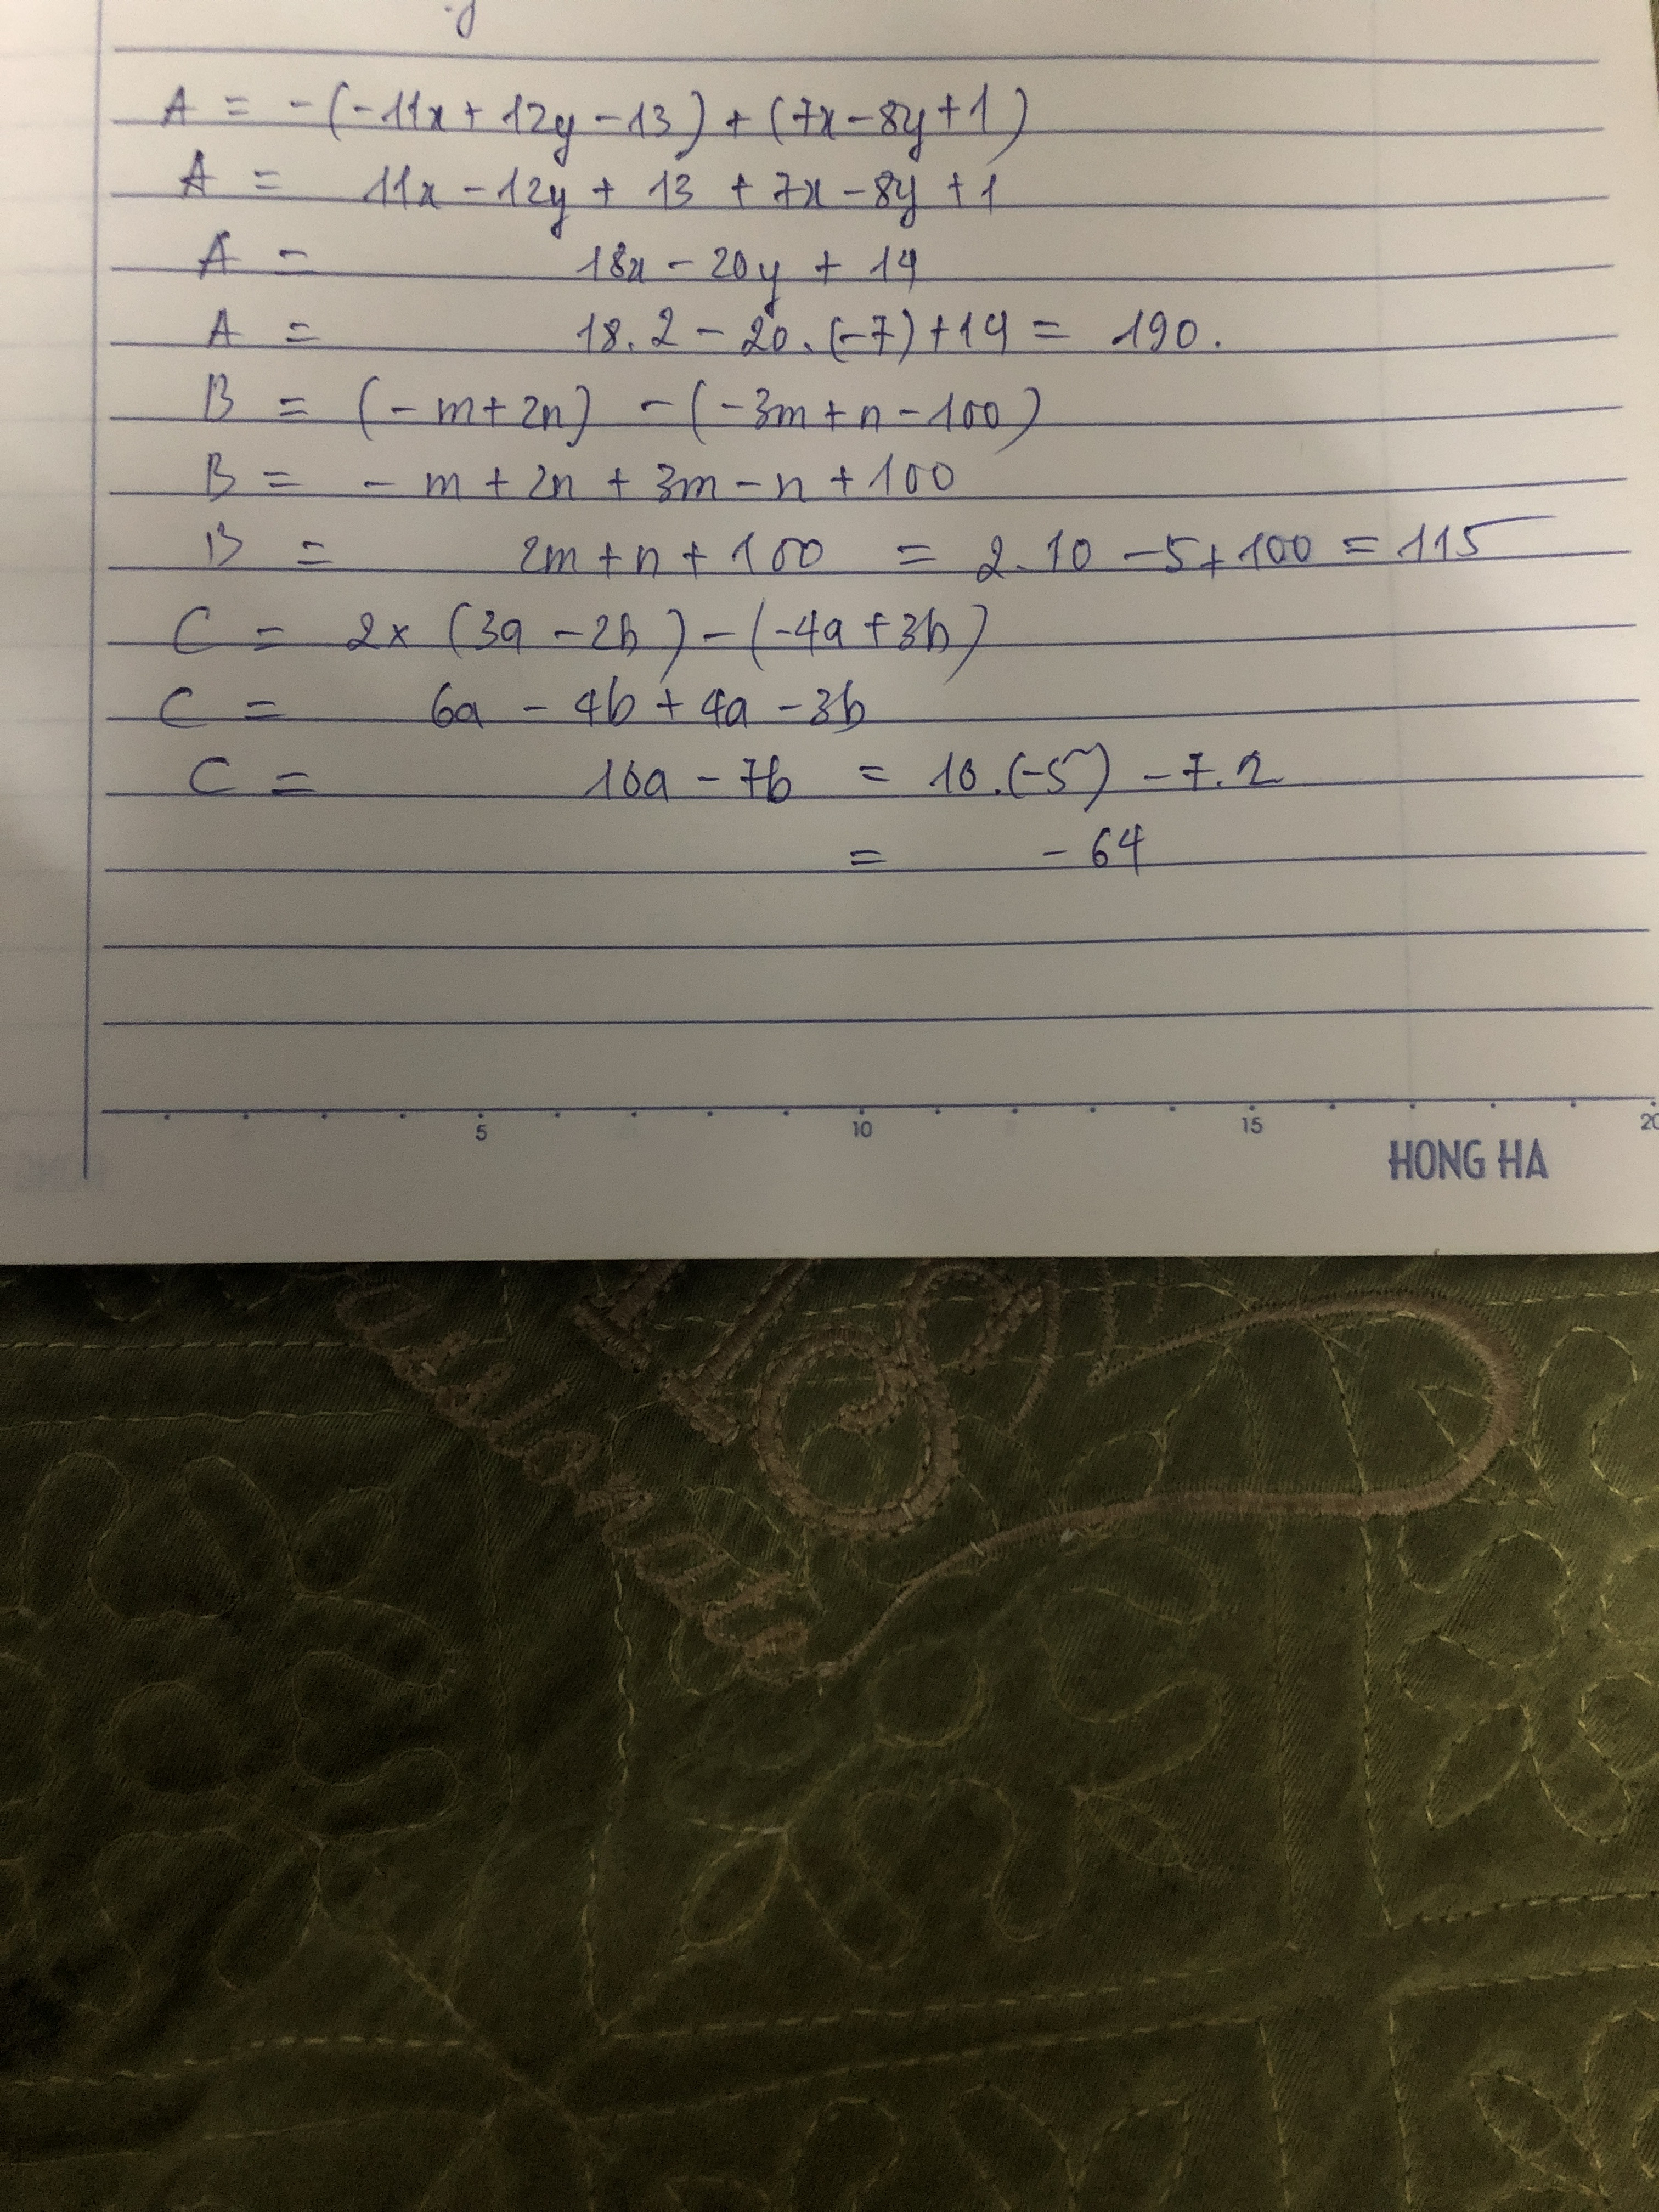 A = -(-11x + 12y - 13) + (7x - 8y + 1)
A = 11x - 12y + 13 + 7x - 8y + 1
A = 18x - 20y + 14
A = 18.2 - 20.(-7) + 14 = 190.
B = (-m + 2n) - (-3m + n - 100)
B = - m + 2n + 3m - n + 100
B = 2m + n + 100 = 2.10 - 5 + 100 = 115
C = 2x (3a - 2b) - (-4a + 3b)
C = 6a - 4b + 4a - 3b
C = 10a - 7b = 10.(-5) - 7.2
= - 64
5 10 15 20
HONG HA